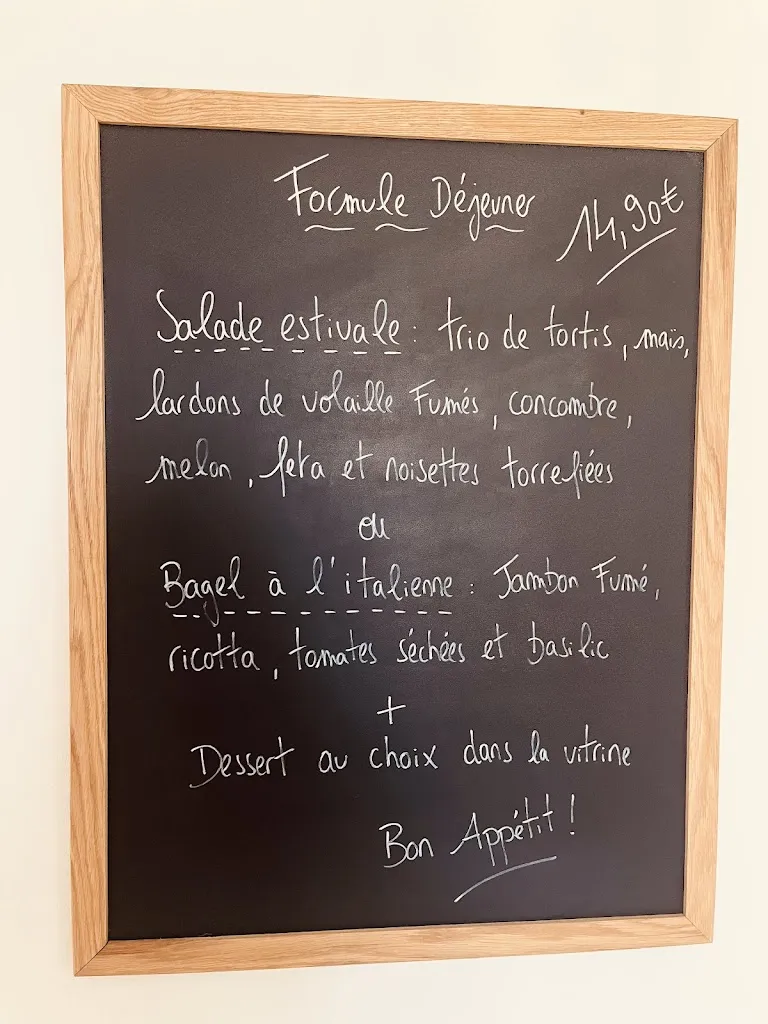 Formule Déjeuner 14,90€
Salade estivale : trio de tortis, maïs,
lardons de volaille Fumés, concombre,
melon, feta et noisettes torrefiées
ou
Bagel à l'italienne : Jambon Fumé,
ricotta, tomates séchées et basilic
+
Dessert au choix dans la vitrine
Bon Appétit !